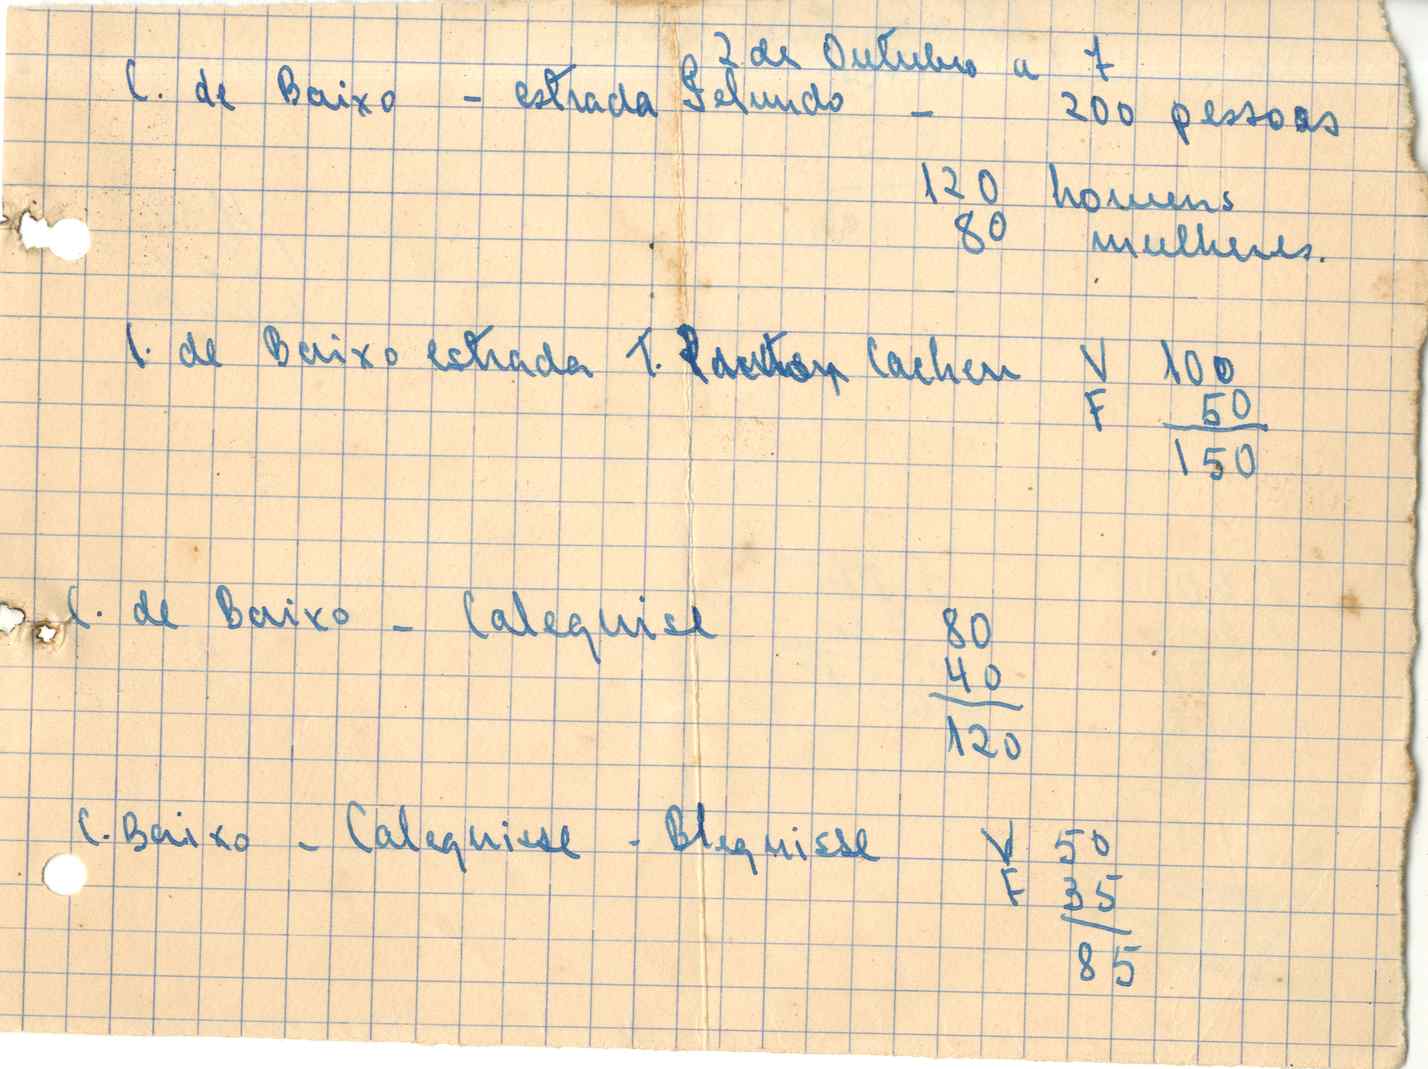 2 de Outubro a 7
C. de Baixo - estrada Pelundo - 200 pessoas
120 homens
80 mulheres.
C. de Baixo estrada T. Cacheu V 100
F 50
150
C. de Baixo - Calequise 80
40
120
C. Baixo - Calequisse - Blequisse V 50
F 35
85